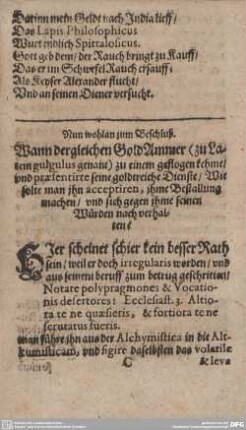 Darinn mein Geldt nach India lieff/
Das Lapis Philosophicus
Wurt endlich Spittalosicus.
Gott geb dem/ der Rauch bringt zu Kauff/
Das er im Schwefel Rauch ersauff/
Als Keyser Alexander flucht/
Vnd an seinen Diener versucht.
Nun wohlan zum Beschluß.
Wann dergleichen Gold Ammer (zu La-
tein gulgulus genant) zu einem geflogen kehme/
vnd præsentirte seine goldtreiche Dienste/ Wie
solte man jhn acceptiren, jhme Bestallung
machen/ vnd sich gegen jhme seinen
Würden nach verhal-
ten?
HIer scheinet schier kein besser Rath
sein/ weil er doch irregularis worden/ vnd
aus seinem beruff zum betrug geschritten/
Notate polypragmones & Vocatio-
nis desertores: Ecclesiast. 3. Altio-
ra te ne quæsieris, & fortiora te ne
scrutatus fueris.
man führe jhn aus der Alchymistica in die Alt-
kumisticam, vnd figire daselbsten das volatile
C & leva